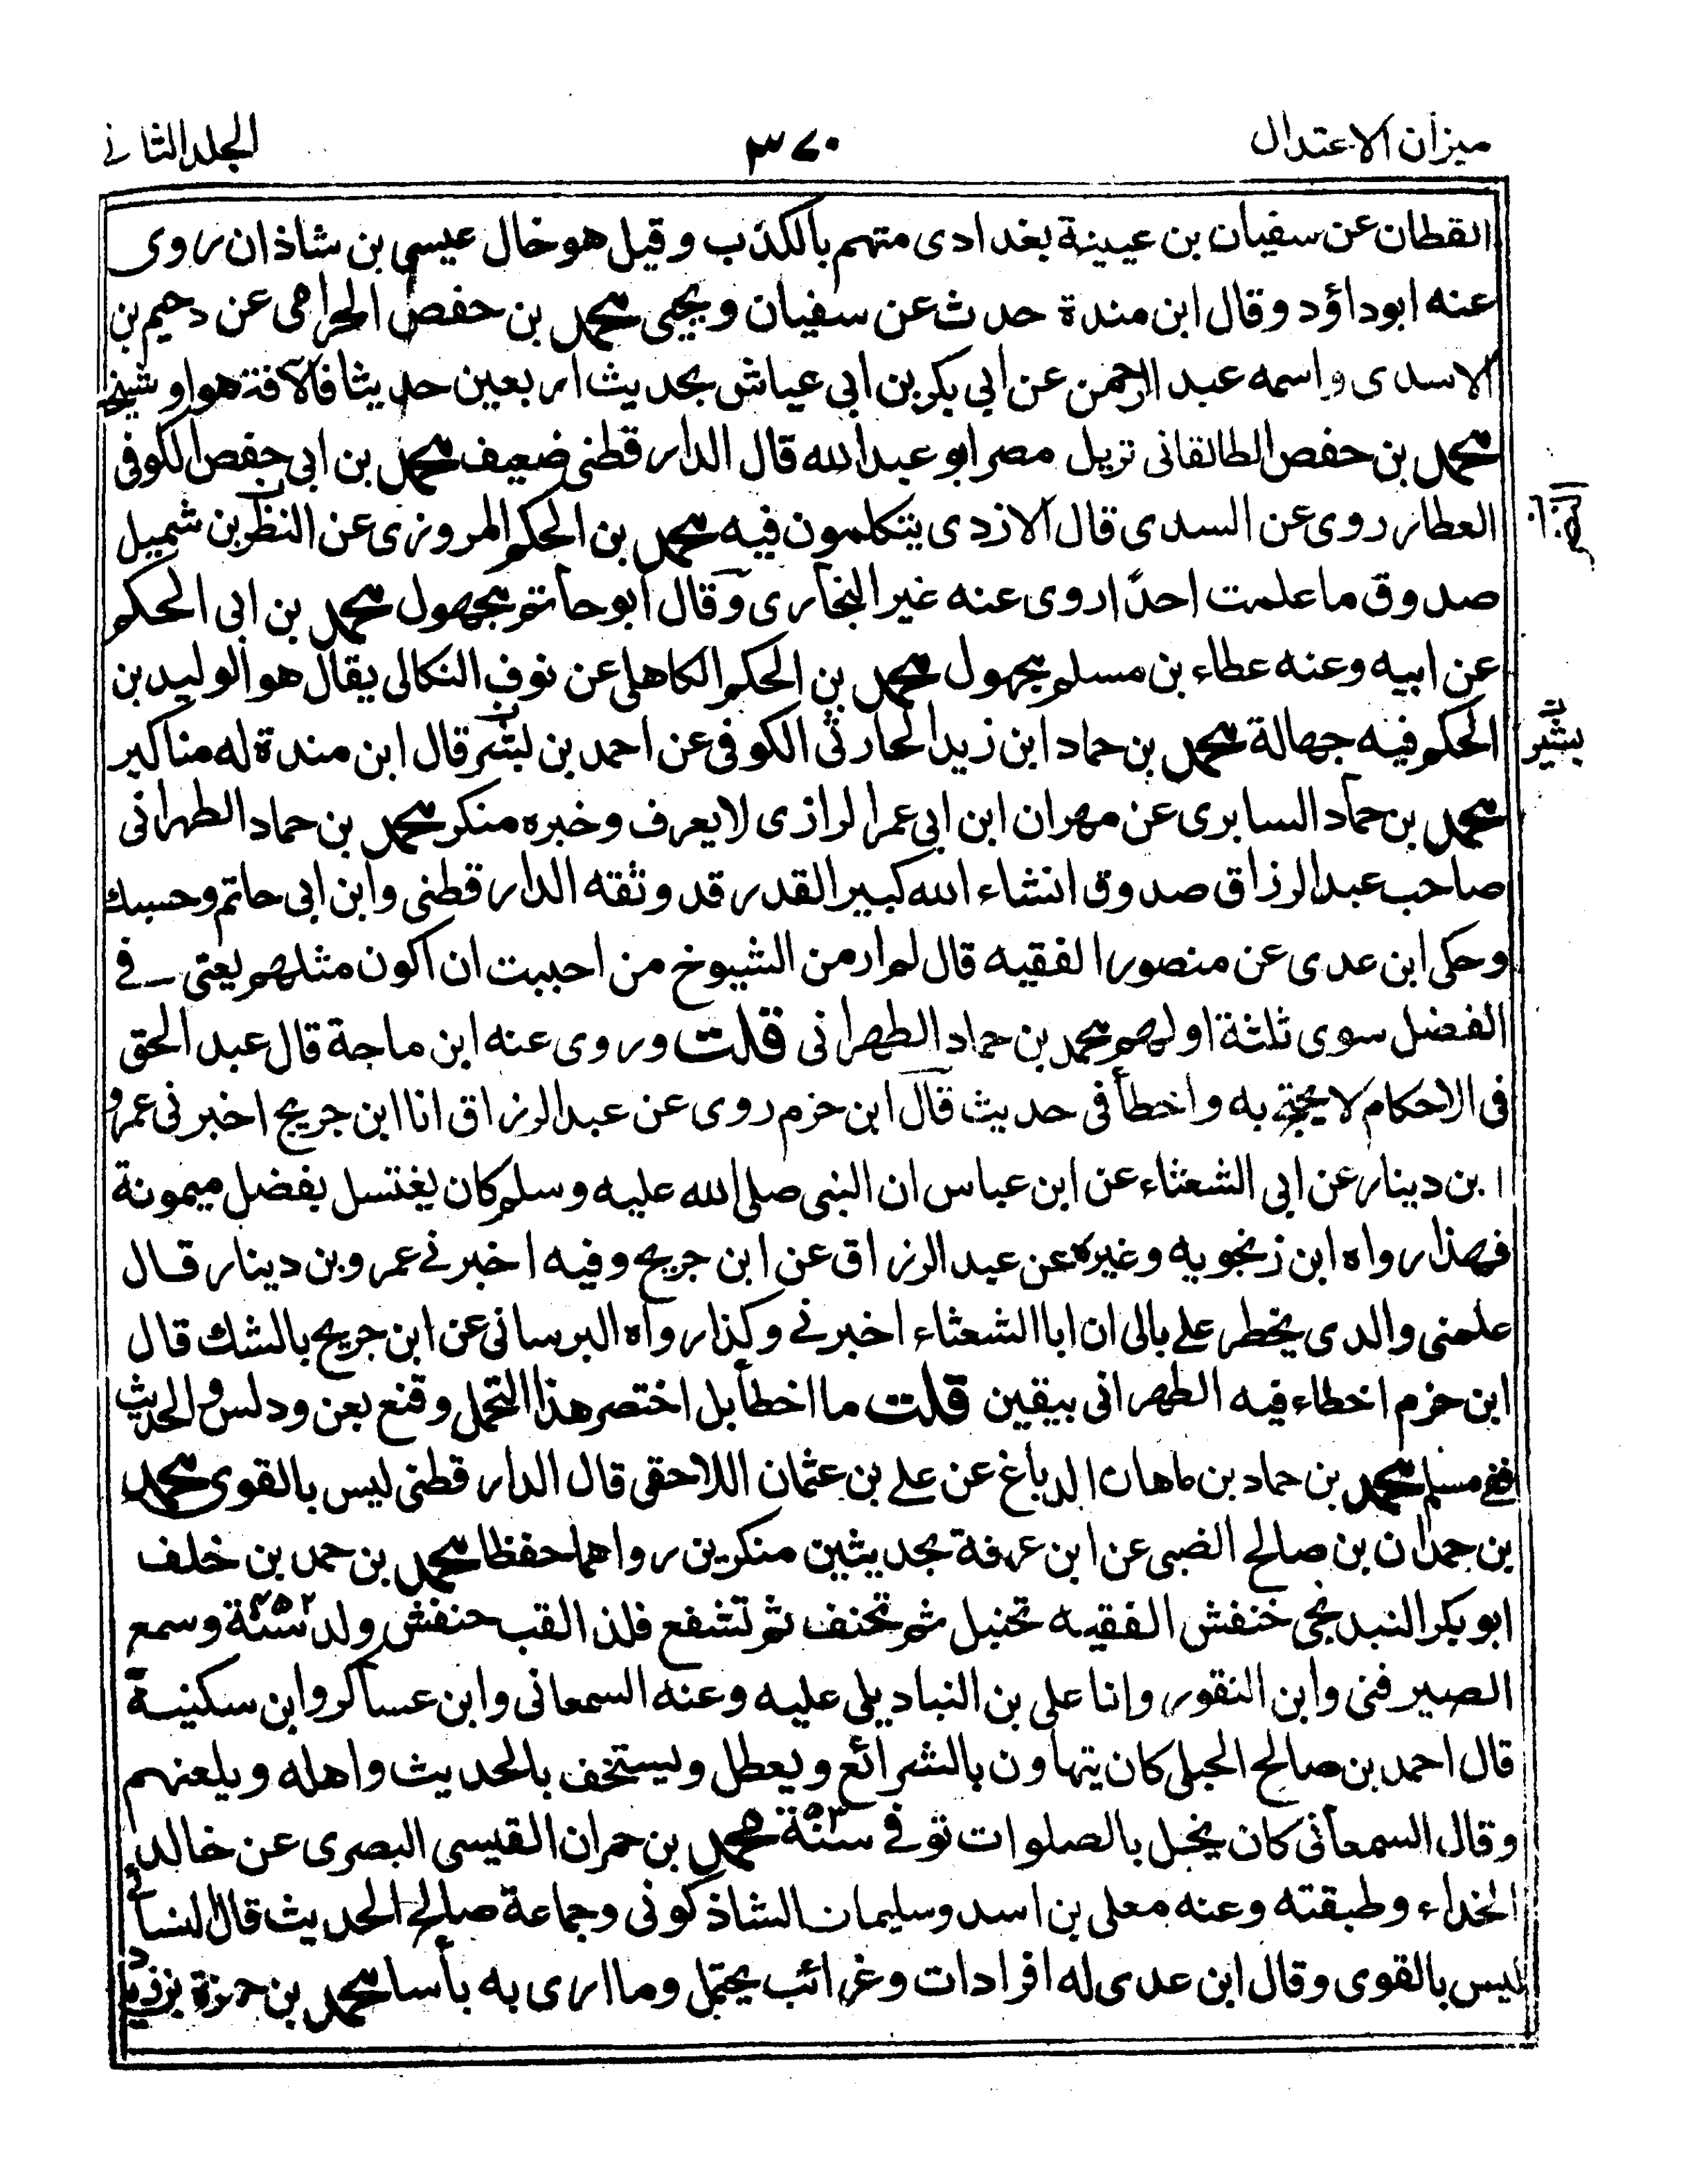 ميزان الاعتدال
٣٧٠
الجلد الثاني
القطان عن سفيان بن عيينة بغدادى متهم بالكذب وقيل هو خال عيسى بن شاذان روى
عنه ابوداؤد وقال ابن مندة حدث عن سفيان ويحيى محمد بن حفص الحرامى عن دحيم بن
الاسدى واسمه عبد الرحمن عن ابي بكر بن ابي عياش بحديث اربعين حديثا فالآفة هو او شيخه
محمد بن حفص الطالقانى نزيل مصر ابو عبد الله قال الدارقطنى ضعيف محمد بن ابي حفص الكوفى
العطار روى عن السدى قال الازدى يتكلمون فيه محمد بن الحكم المروزى عن النظر بن شميل
صدوق ما علمت احدًا روى عنه غير البخارى وقال ابو حاتم مجهول محمد بن ابى الحكم
عن ابيه وعنه عطاء بن مسلم مجهول محمد بن الحكم الكاهلى عن نوف النكالى يقال هو الوليد بن
الحكم فيه جهالة محمد بن حماد ابن زيد الحارثى الكوفى عن احمد بن بشر قال ابن مندة له مناكير
بشير
محمد بن حماد السابرى عن مهران ابن ابي عمر الرازى لا يعرف وخبره منكر محمد بن حماد الطهرانى
صاحب عبد الرزاق صدوق انشاء الله كبير القدر قد وثقه الدارقطنى وابن ابى حاتم وحسبك
وحكى ابن عدى عن منصور الفقيه قال لم ار من الشيوخ من احببت ان اكون مثلهم يعنى فى
الفضل سوى ثلثة اولهم محمد بن حماد الطهرانى قلت وروى عنه ابن ماجة قال عبد الحق
فى الاحكام لا يحتج به واخطأ فى حديث قال ابن حزم روى عن عبد الرزاق انا ابن جريج اخبرنى عمرو
ا بن دينار عن ابى الشعثاء عن ابن عباس ان النبى صلى الله عليه وسلم كان يغتسل بفضل ميمونة
فهذا رواه ابن زنجويه وغيره عن عبد الرزاق عن ابن جريج وفيه اخبرنے عمرو بن دينار قال
علمنى والدى يخطر علے بالى ان ابا الشعثاء اخبرنے وكذا رواه البرسانى عن ابن جريج بالشك قال
ابن حزم اخطاء فيه الطهرانى بيقين قلت ما اخطأ بل اختصر هذا التحمل وقنع بعن ودلس والحديث
ففے مسلم محمد بن حماد بن ماهان الدباغ عن علے بن عثمان اللاحقى قال الدارقطنى ليس بالقوى محمد
بن حمدان بن صالح الضبى عن ابن عرفة بحديثين منكرين رواهما حفظا محمد بن حمد بن خلف
ابوبكر النبدنجى خنفش الفقيه تحنبل ثم تحنف ثم تشفع فلذا لقب حنفش ولد ٤٥٢ سنة وسمع
الصيرفنى وابن النقور وانا على بن النباديلى عليه وعنه السمعانى وابن عساكر وابن سكينة
قال احمد بن صالح الجبلى كان يتهاون بالشرائع ويعطل ويستخف بالحديث واهله ويلعنهم
وقال السمعانى كان يخل بالصلوات توفے سنة محمد بن حمران القيسى البصرى عن خالد
الخداء وطبقته وعنه معلى بن اسد وسليمان الشاذكونى وجماعة صالح الحديث قال النسائى
ليس بالقوى وقال ابن عدى له افرادات وغرائب يحتمل وما ارى به بأسا محمد بن حمزة بن زياد